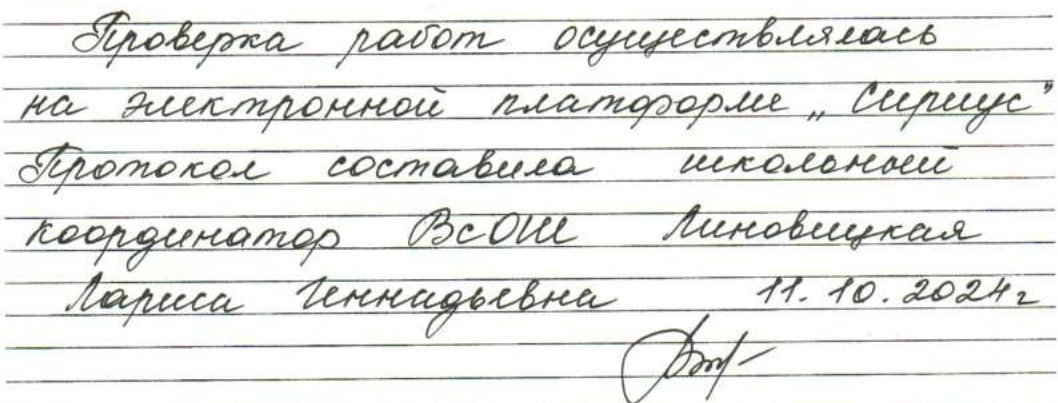 Проверка работ осуществлялась
на электронной платформе „Сириус”
Протокол составила школьный
координатор ВсОШ Линовицкая
Лариса Геннадьевна 11.10.2024г